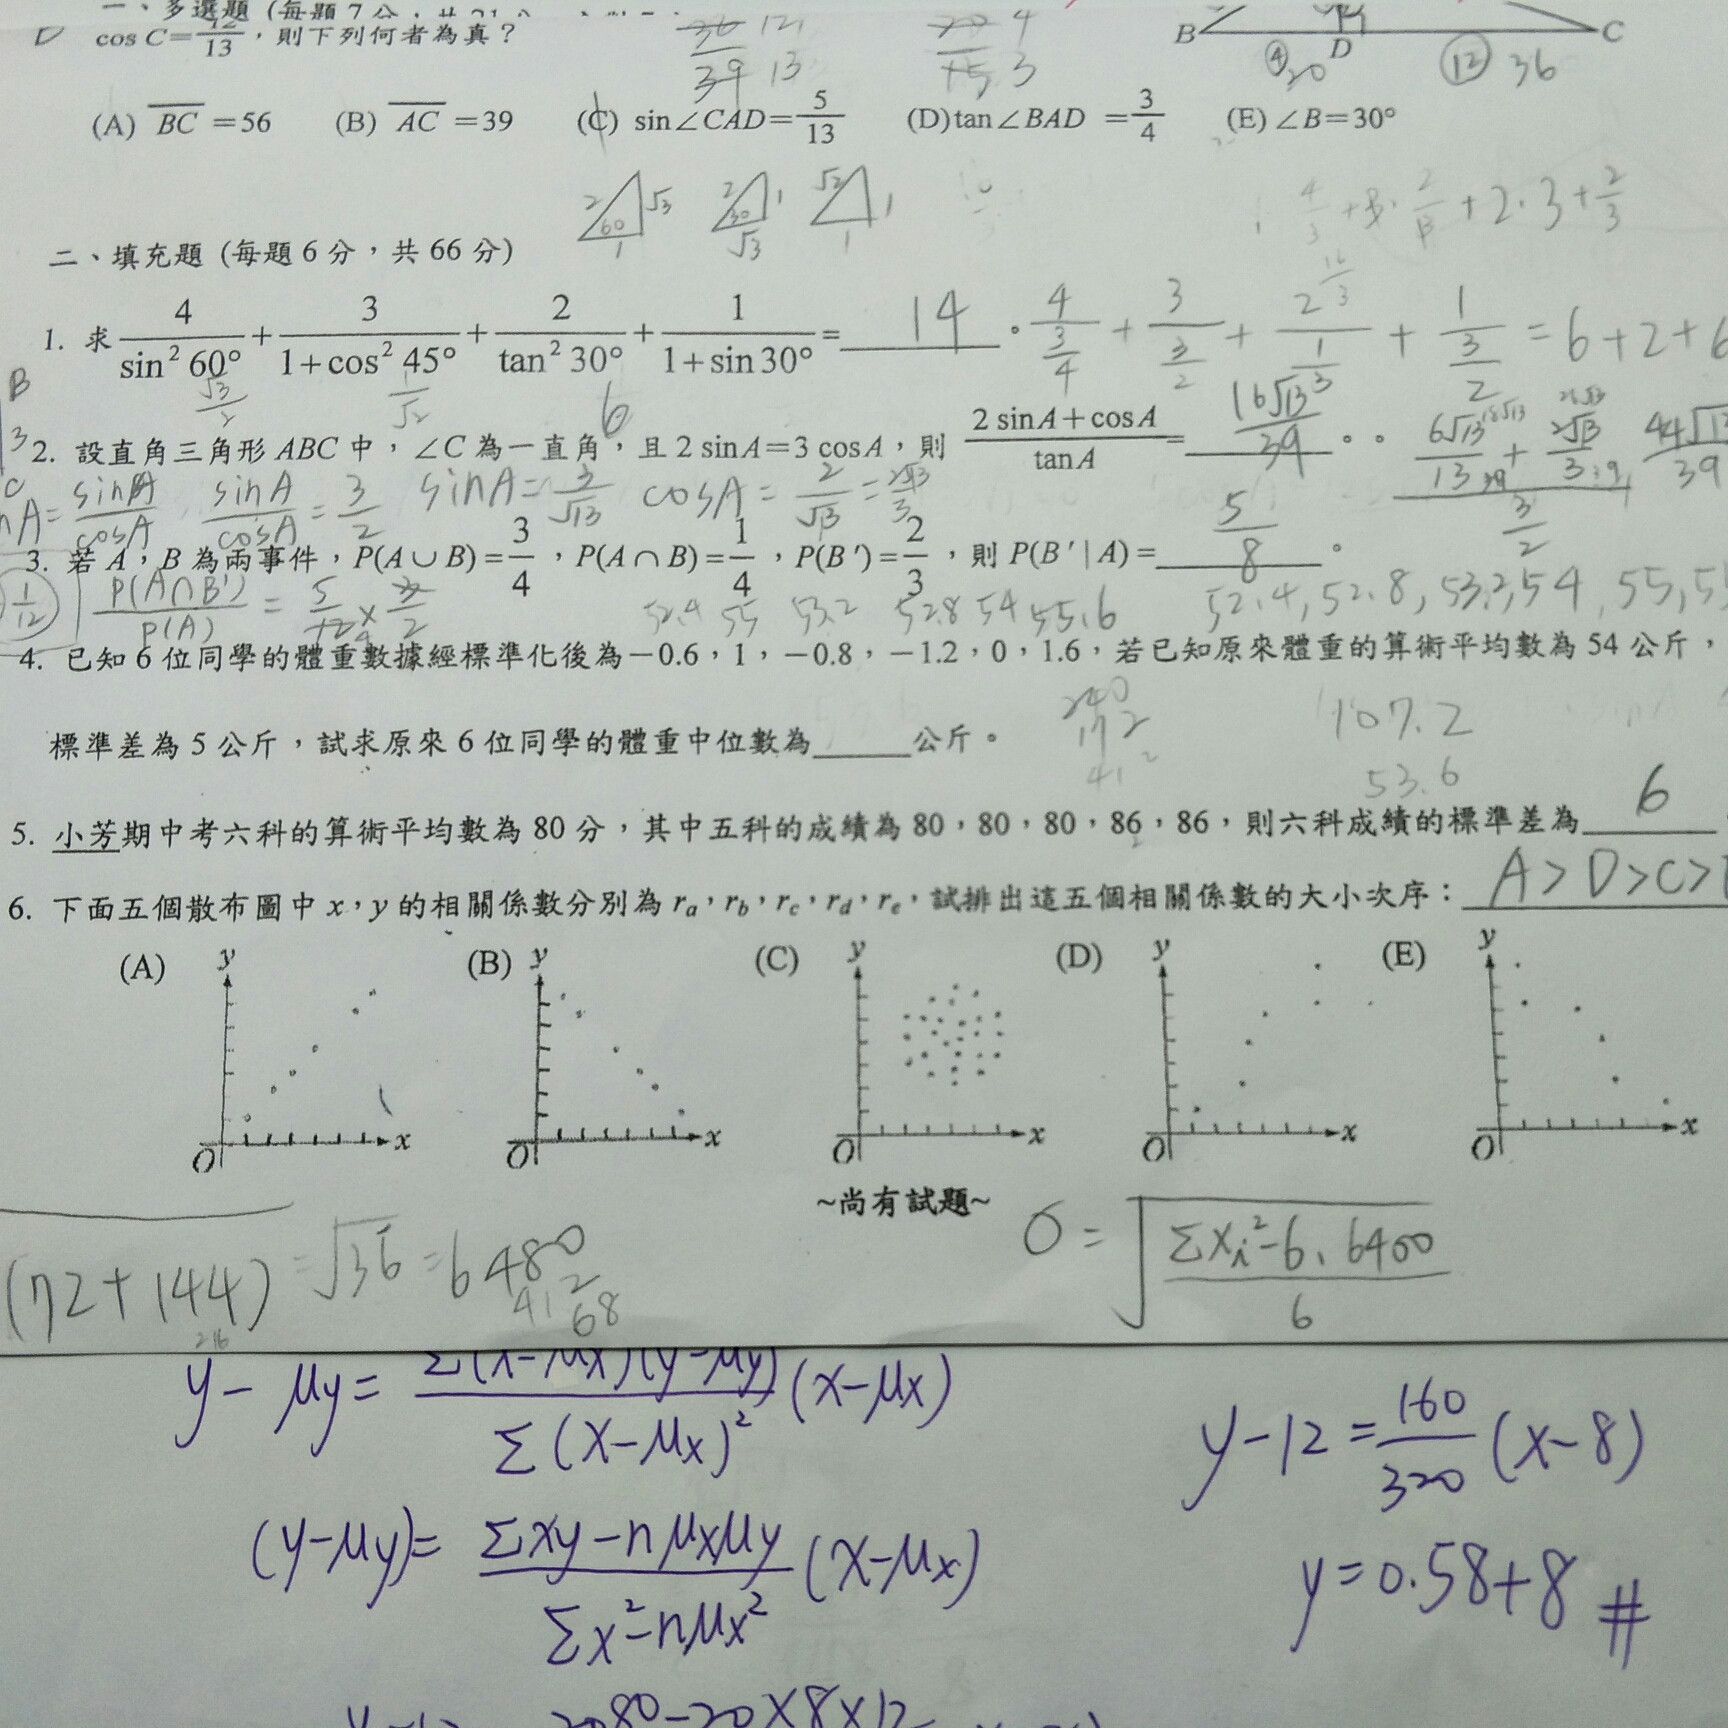 一、多選題 (每題 7 分,
cos C=12/13,則下列何者為真?
36/39 12/13
4 3
B D C
④ 20 ⑫ 36
(A) BC =56 (B) AC =39 (C) sin∠CAD=5/13 (D)tan∠BAD =3/4 (E) ∠B=30°
2 √3 60 1 2 1 30 √3 √2 1 1
+2·3+2/3
二、填充題 (每題 6 分,共 66 分)
1. 求 4/sin² 60° + 3/(1+cos² 45°) + 2/tan² 30° + 1/(1+sin 30°) = 14 。 4/(3/4) + 3/(3/2) + 2/(1/3) + 1/(3/2) = 6+2+6
√3/2 1/√2 6
B
3
C
2. 設直角三角形 ABC 中,∠C 為一直角,且 2 sinA=3 cosA,則 (2 sinA+cosA)/tanA = 16√13/39 。
6√13/13 + 2√13/3 44√13/39
3/2
A= sinA/cosA sinA/cosA = 3/2 sinA= 3/√13 cosA = 2/√13 = 2√13/3
3. 若 A,B 為兩事件,P(A∪B)=3/4,P(A∩B)=1/4,P(B′)=2/3,則 P(B′|A)= 5/8 。
1/12 P(A∩B')/P(A) = 5/12 × 3/2
52.4 55 53.2 52.8 54 55.6 52.4, 52.8, 53.2, 54, 55, 5
4. 已知 6 位同學的體重數據經標準化後為-0.6,1,-0.8,-1.2,0,1.6,若已知原來體重的算術平均數為 54 公斤,
標準差為 5 公斤,試求原來 6 位同學的體重中位數為______公斤。
240
172
412
107.2
53.6
5. 小芳期中考六科的算術平均數為 80 分,其中五科的成績為 80,80,80,86,86,則六科成績的標準差為 6
6. 下面五個散布圖中 x,y 的相關係數分別為 ra,rb,rc,rd,re,試排出這五個相關係數的大小次序: A>D>C>
(A) y (B) y (C) y (D) y (E) y
O x O x O x O x O x
~尚有試題~
(72+144) = √36 = 6
216
480
412
68
σ = √((Σxi²-6·6400)/6)
y-μy= Σ(x-μx)(y-μy)/Σ(x-μx)² (x-μx)
y-12=160/320 (x-8)
(y-μy)= (Σxy-nμxμy)/(Σx²-nμx²) (x-μx)
y=0.58+8 #
2080-20×8×12